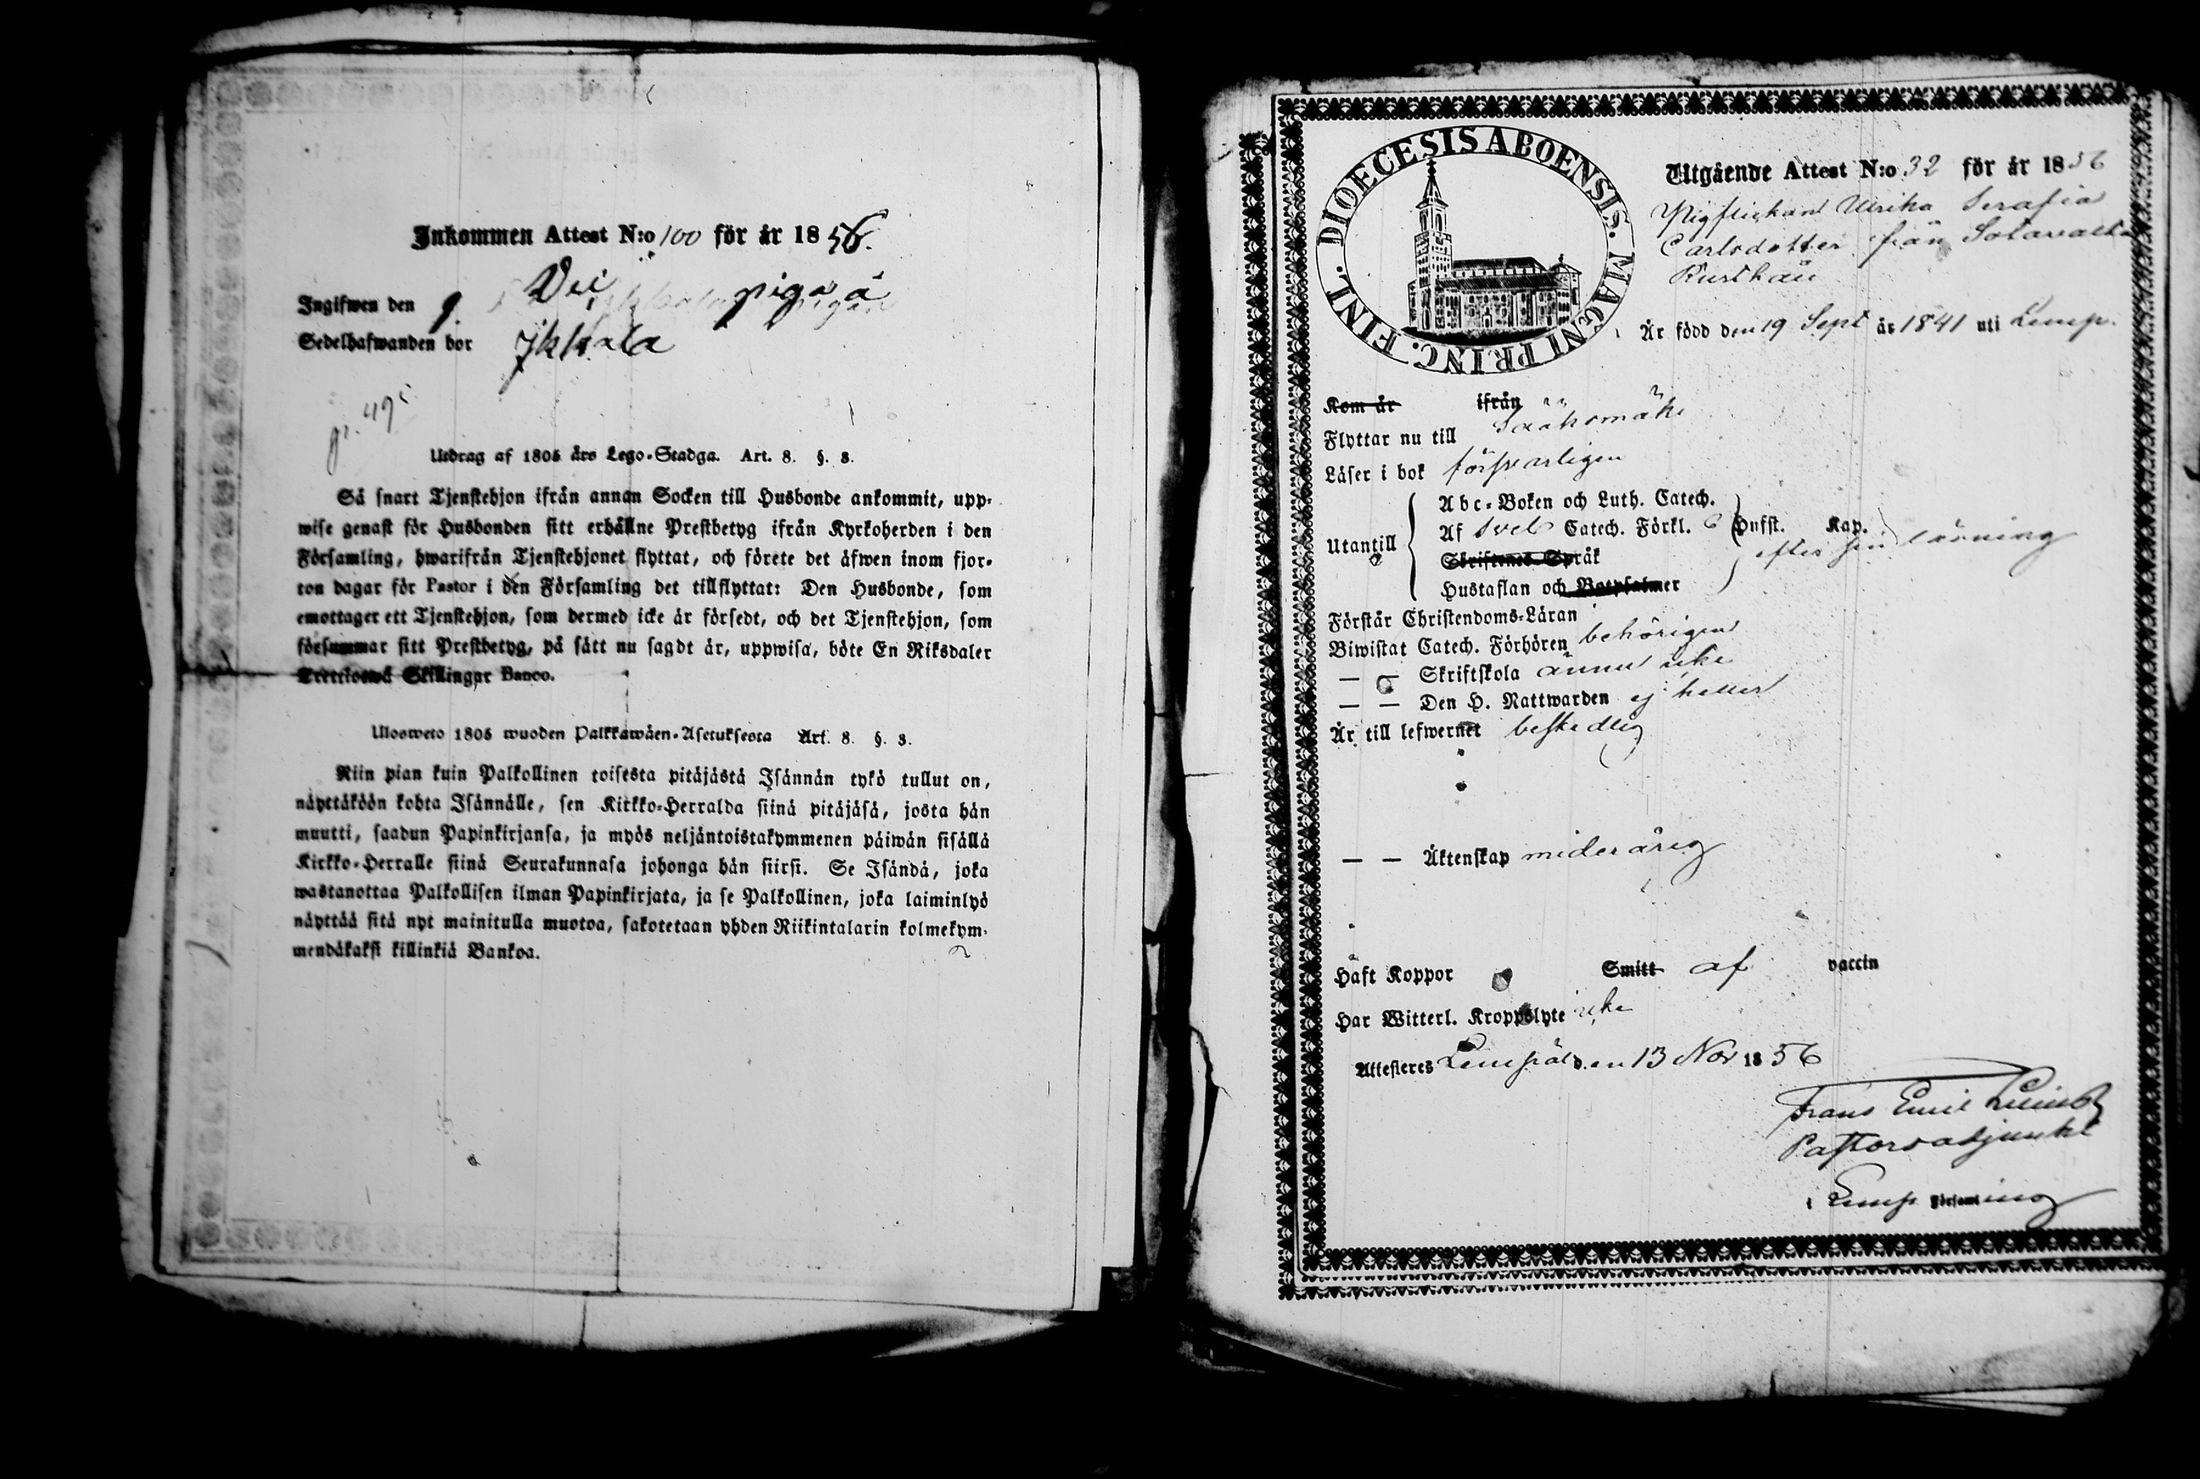 Inkommen Attest N:o 100 för år 1856.
Ingifwen den 9 Dec piga å
Sedelhafwanden bor Ikkala
Utdrag af 1805 års Lego-Stadga. Art. 8. §. 3.
Så snart Tjenstehjon ifrån annan Socken till Husbonde ankommit, upp-
wise genast för Husbonden sitt erhållne Prestbetyg ifrån Kyrkoherden i den
Församling, hwarifrån Tjenstehjonet flyttat, och förete det äfwen inom fjor-
ton dagar för Pastor i den Församling det tillflyttat: Den Husbonde, som
emottager ett Tjenstehjon, som dermed icke är försedt, och det Tjenstehjon, som
försummar sitt Prestbetyg, på sätt nu sagdt är, uppwisa, böte En Riksdaler
Trettiotwå Skillingar Banco.
Ulosweto 1805 wuoden Palkkawäen-Asetuksesta Art. 8. §. 3.
Niin pian kuin Palkollinen toisesta pitäjästä Isännän tykö tullut on,
näyttäköön kohta Isännälle, sen Kirkko-Herralda siinä pitäjäsä, josta hän
muutti, saadun Papinkirjansa, ja myös neljäntoistakymmenen päiwän sisällä
Kirkko-Herralle siinä Seurakunnasa johonga hän siirsi. Se Isändä, joka
wastanottaa Palkollisen ilman Papinkirjata, ja se Palkollinen, joka laiminlyö
näyttää sitä nyt mainitulla muotoa, sakotetaan yhden Riikintalarin kolmekym-
mendäkaksi killinkiä Bankoa.
DIOECESIS ABOENSIS. MAGNI PRINC. FINL.
Utgående Attest N:o 32 för år 1856
Pigflickan Ulrika Serafia
Carlsdotter från Sotavalta
Är född den 19 Sept år 1841 uti Lemp.
Kom år ifrån
Flyttar nu till Sääksmäki
Läser i bok försvarligen
Abc-Boken och Luth. Catech.
Utantill Af Sveb Catech. Förkl. 6 Hufst. Kap.
efter sin läsning
Skriftenes Språk
Hustaflan och Botpsalmer
Förstår Christendoms-Läran
Biwistat Catech. Förhören behörigen
— — Skriftskola ännu icke
— — Den H. Nattwarden ej heller
Är till lefwernet beskedlig
— — Äktenskap minderårig
Haft Koppor Smitt af vaccin
Har Witterl. Kroppslyte icke
Attesteres Lempäl den 13 Nov 1856
Frans Emil
Pastorsadjunkt
i Lemp. Församling